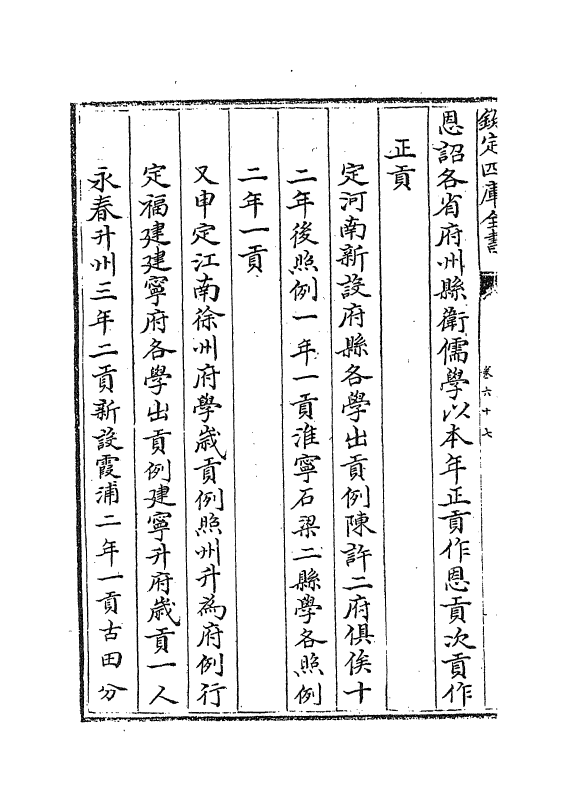 欽定四庫全書
卷六十七
恩詔各省府州縣衛儒學以本年正貢作恩貢次貢作
正貢
定河南新設府縣各學出貢例陳許二府俱俟十
二年後照例一年一貢淮寧石梁二縣學各照例
二年一貢
又申定江南徐州府學歲貢例照州升為府例行
定福建建寧府各學出貢例建寧升府歲貢一人
永春升州三年二貢新設霞浦二年一貢古田分